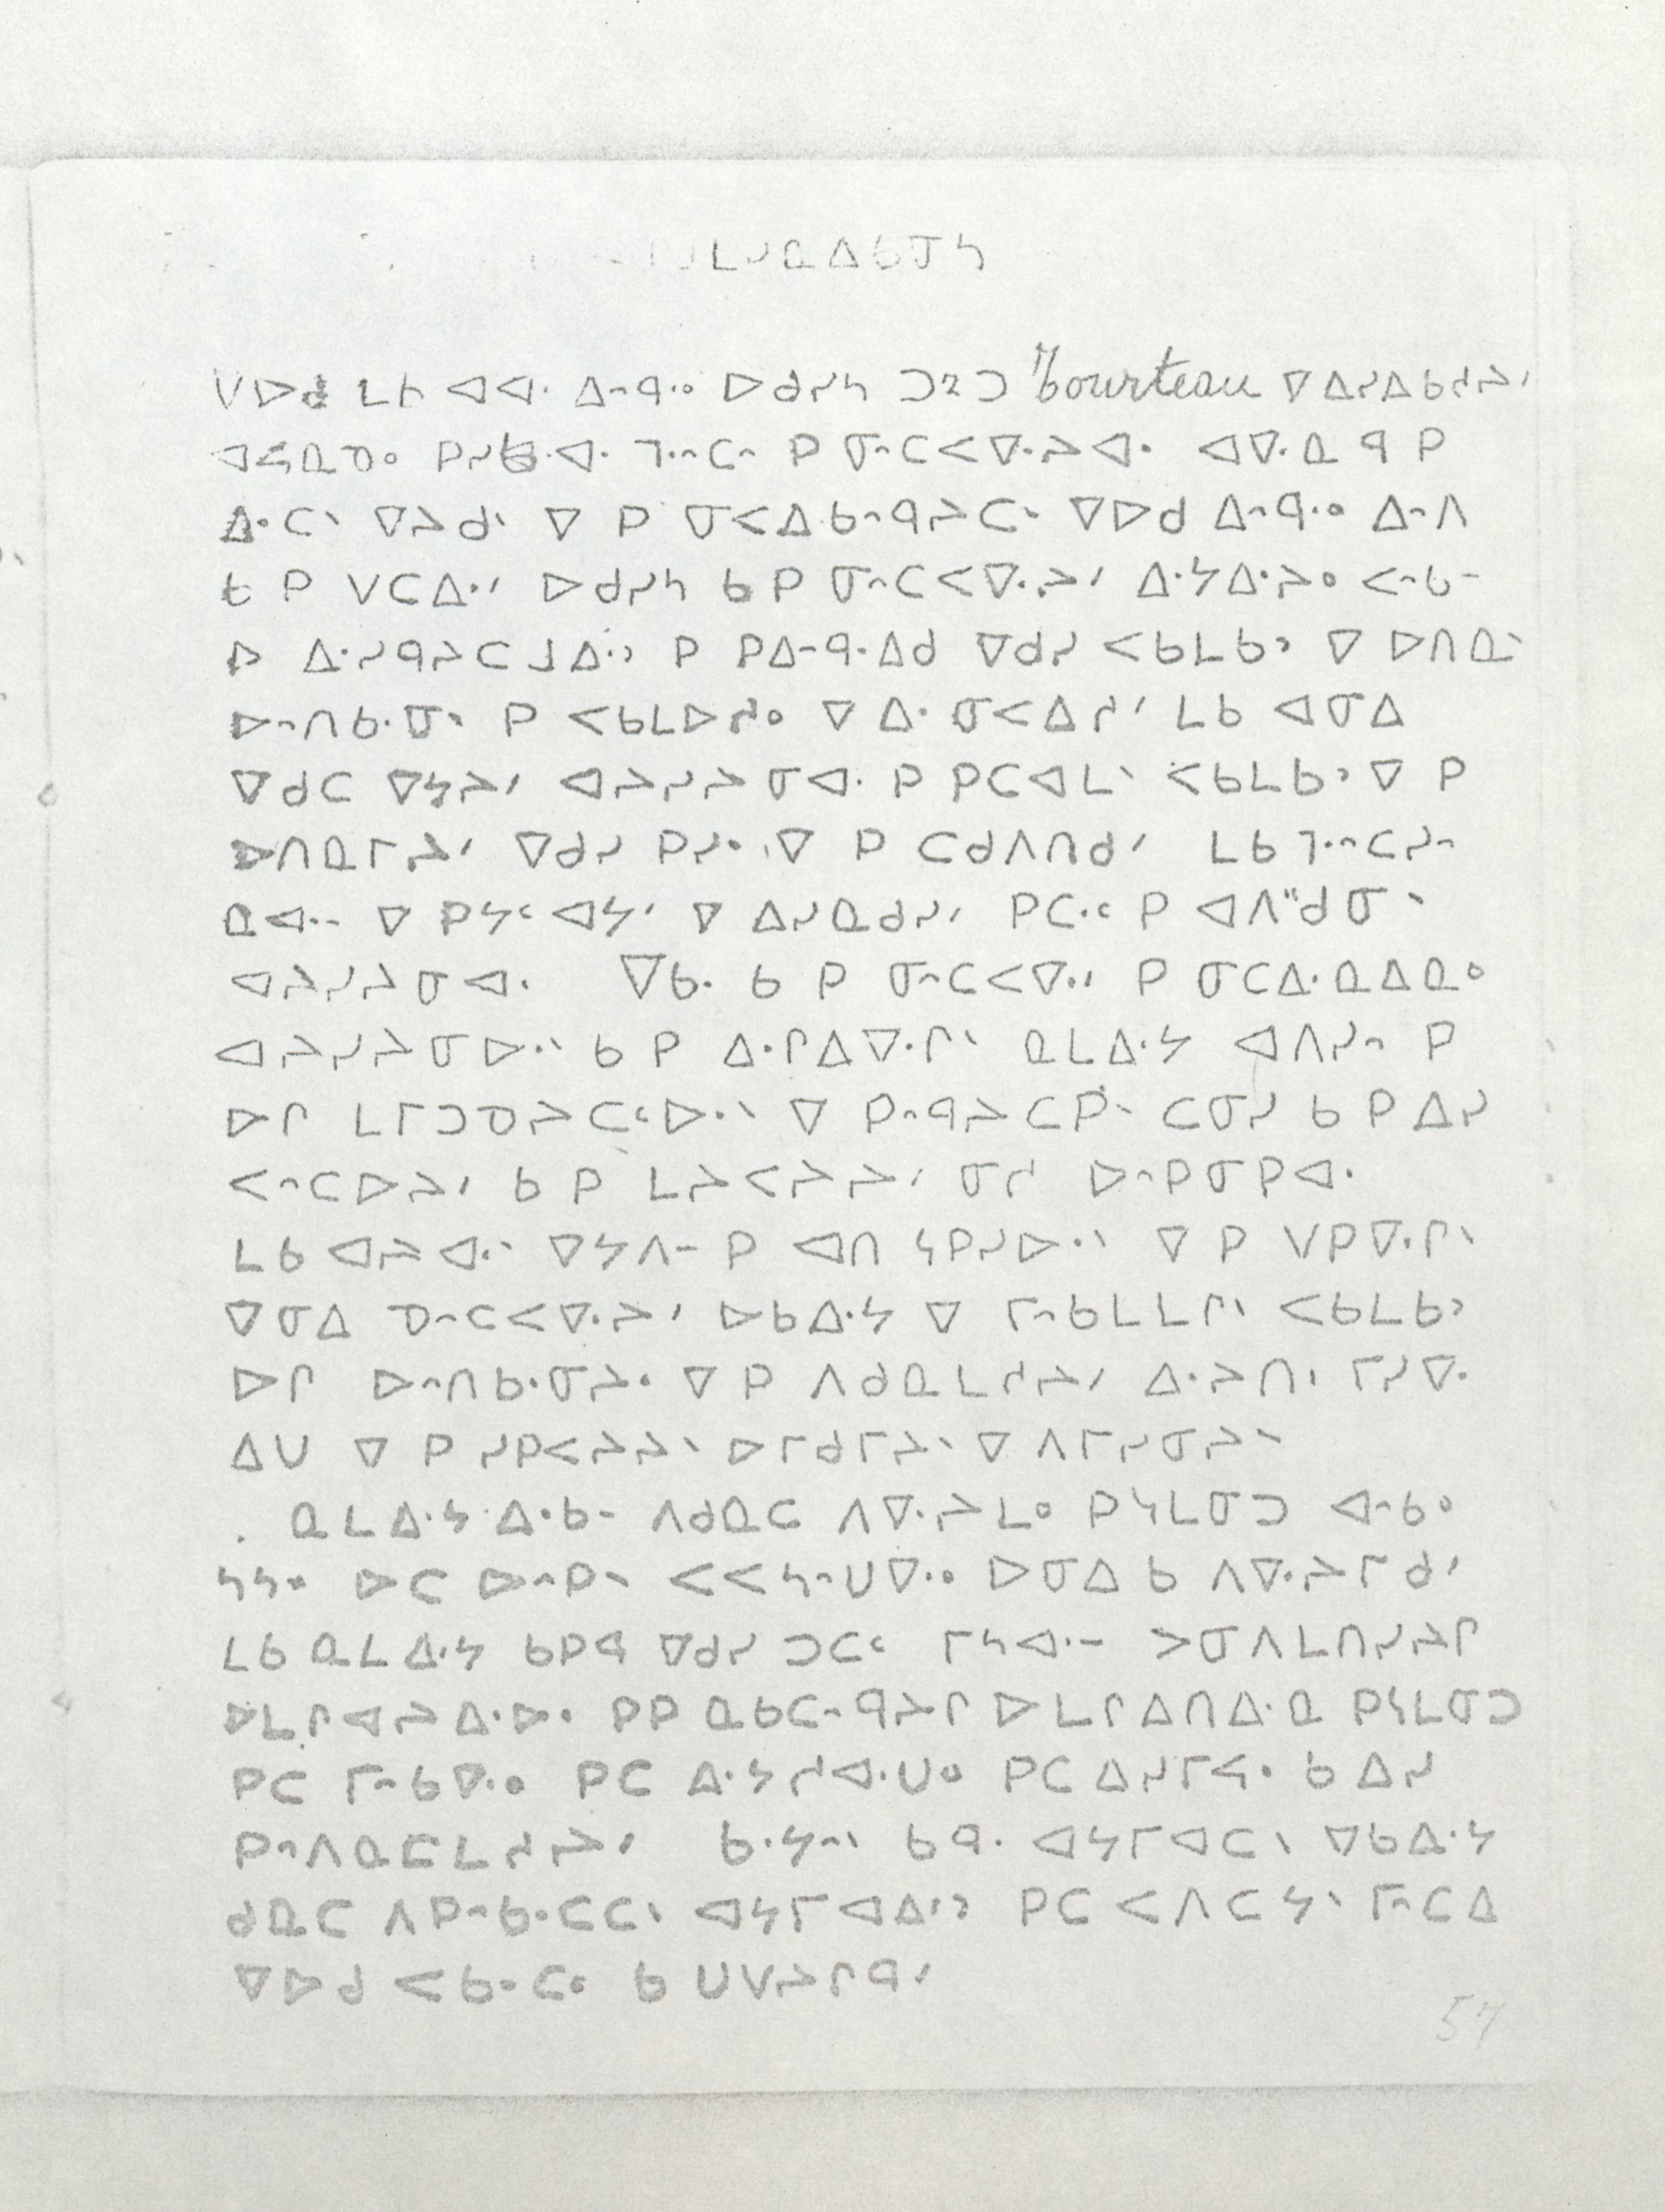 ᒪᓯᓇᐃᑲᓂᔕ
ᐯᐅᑯ ᒪᑲ ᐊᐊᐧ ᐃᐢᑫᐧᐤ ᐅᑯᓯᓴ ᑐᘔᑐ Bourteau ᐁᐃᓯᐃᑲᓱᔨᐟ
ᐊᓴᓇᓄᐤ ᑭᓯᑲᐧᐊᐧ ᒣᐧᐢᑕᐢ ᑭ ᓂᐢᑕᐸᐁᐧᔨᐊᐧ ᐊᐁᐧᓇ ᑫ ᑭ
ᐃᐧᑕᐠ ᐁᔨᑯᐠ ᐁ ᑭ ᓂᐸᐃᑲᐢᑫᔨᑕᐠ ᐁᐅᑯ ᐃᐢᑫᐧᐤ ᐃᐢᐱ
ᑲ ᑭ ᐯᑕᐃᐧᐟ ᐅᑯᓯᓴ ᑲ ᑭ ᓂᐢᑕᐸᐁᐧᔨᐟ ᐃᐧᓴᐃᐧᔨᐤ ᐸᐢᑲᐨ
ᐅ ᐃᐧᓯᑫᔨᑕᒧᐃᐧᐣ ᑭ ᑭᐃᐢᑫᐧᐃᑯ ᐁᑯᓯ ᐸᑲᒪᑲᐣ ᐁ ᐅᑎᓇᐠ
ᐅᐢᑎᑲᐧᓂᐠ ᑭ ᐸᑲᒪᐅᓱᐤ ᐁ ᐃᐧ ᓂᐸᐃᓱᐟ ᒪᑲ ᐊᓂᐃ
ᐁᑯᑕ ᐁᓴᔨᐟ ᐊᔨᓯᔨᓂᐊᐧ ᑭ ᑭᑕᐊᒪᐠ ᐸᑲᒪᑲᐣ ᐁ ᑭ
ᐅᑎᓇᒥᔨᐟ ᐁᑯᓯ ᑭᓯᐤ ᐁ ᑭ ᑕᑯᐱᑎᑯᐟ ᒪᑲ ᒣᐧᐢᑕᓯᐢ
ᓇᐊᐧᐨ ᐁ ᑭᓴᐦ ᐊᔭᐟ ᐁ ᐃᓯᓇᑯᓯᐟ ᑭᑕᐧᒼ ᑭ ᐊᐱᐦᑯᓂᐠ
ᐊᔨᓯᔨᓂᐊᐧ ᐁᑲᐧ ᑲ ᑭ ᓂᐢᑕᐸᐁᐧᐟ ᑭ ᓂᑕᐃᐧᓇᐃᓇᐤ
ᐊᔨᓯᔨᓂᐅᐧᐠ ᑲ ᑭ ᐃᐧᒋᐃᐁᐧᒋᐠ ᓇᒪᐃᐧᔭ ᐊᐱᓯᐢ ᑭ
ᐅᒋ ᒪᒥᑐᓄᔨᑕᒼᐅᐧᐠ ᐁ ᑭᐢᑫᔨᑕᑭᐠ ᑕᓂᓯ ᑲ ᑭ ᐃᓯ
ᐸᐢᑕᐅᔨᐟ ᑲ ᑭ ᒪᔨᐸᔨᔨᐟ ᓂᓱ ᐅᐢᑭᓂᑭᐊᐧ
ᒪᑲ ᐊᔨᐊᐧᐠ ᐁᔭᐱᐨ ᑭ ᐊᑎ ᓴᑭᓯᐅᐧᐠ ᐁ ᑭ ᐯᑭᐁᐧᒋᐠ
ᐁᓂᐃ ᓄᐢᑕᐸᐁᐧᔨᐟ ᐅᑲᐃᐧᔭ ᐁ ᒥᐢᑲᒪᒪᒋᐠ ᐸᑲᒪᑲᐣ
ᐅᒋ ᐅᐢᑎᑲᐧᓂᔨᐤ ᐁ ᑭ ᐱᑯᓇᒪᓱᔨᐟ ᐃᐧᔨᑎᐠ ᒥᓯᐁᐧ
ᐃᑌ ᐁ ᑭ ᓯᑭᐸᔨᔨᐠ ᐅᒥᑯᒥᔨᐠ ᐁ ᐱᒥᓯᓂᔨᐠ
ᓇᒪᐃᐧᔭ ᐃᐧᑲᐨ ᐱᑯᓇᑕ ᐱᐁᐧᔨᒪᐤ ᑭᓴᒪᓂᑐ ᐊᐢᑲᐤ
ᓴᓴᐤ ᐅᑕ ᐅᐢᑭᐠ ᐸᐸᓴᐢᑌᐁᐧᐤ ᐅᓂᐃ ᑲ ᐱᐁᐧᔨᒥᑯᐟ
ᒪᑲ ᓇᒪᐃᐧᔭ ᑲᑭᑫ ᐁᑯᓯ ᑐᑕᒼ ᒥᓴᐊᐧᐨ ᐳᓂᐱᒪᑎᓯᔨᒋ
ᐅᒪᒋᐊᔨᐃᐧᐅᐧ ᑭᑭ ᓇᑲᑕᐢᑫᔨᒋ ᐅᒪᒋᐃᑎᐃᐧᓇ ᑭᓴᒪᓂᑐ
ᑭᑕ ᒥᐢᑲᐁᐧᐤ ᑭᑕ ᐃᐧᔭᓱᐊᐧᑌᐤ ᑭᑕ ᐃᓯᒥᔦᐤ ᑲ ᐃᓯ
ᑭᐢᐱᓇᑕᒪᓱᔨᐟ ᑲᐧᔭᐢᐠ ᑲᑫᐧ ᐊᔭᒥᐊᑕᐠ ᐁᑲᐃᐧᔭ
ᑯᓇᑕ ᐱᑭᐢᑲᐧᑕᑕᐠ ᐊᔭᒥᐊᐃᐧᐣ ᑭᑕ ᐸᐱᑕᔭᐠ ᒥᐢᑕᐃ
ᐁᐅᑯ ᐸᑲᐧᑕᐤ ᑲ ᑌᐯᔨᒋᑫᐟ
57